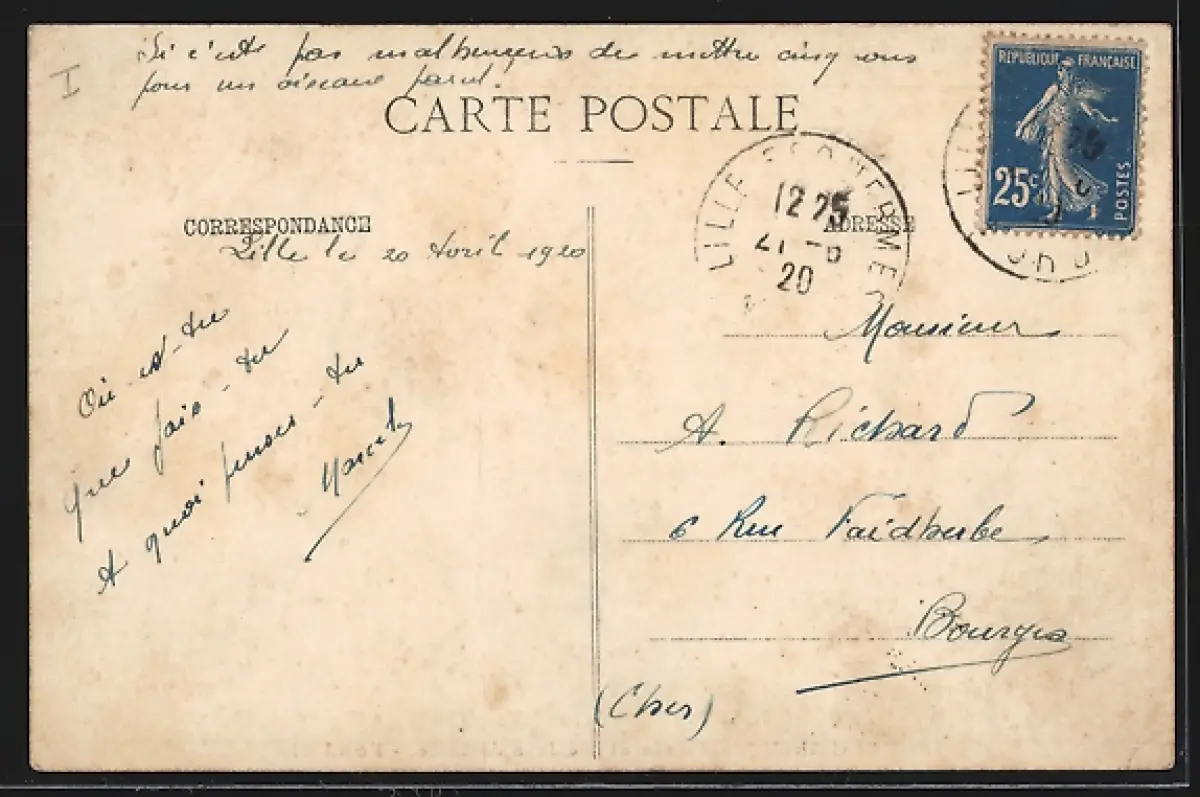 I
Si c'est pas malheureux de mettre cinq sous
pour un oiseau pareil.
CARTE POSTALE
REPUBLIQUE FRANÇAISE
25c
POSTES
LILLE
12 25
21 -
20
CORRESPONDANCE
ADRESSE
Lille le 20 Avril 1920
Où es-tu
que fais-tu
A quoi penses-tu
Marcel
Monsieur
A. Richard
6 Rue Faidherbe
Bourges
(Cher)